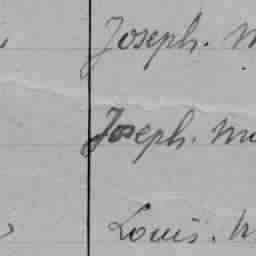 Joseph. M
Joseph. Mu
Louis. M